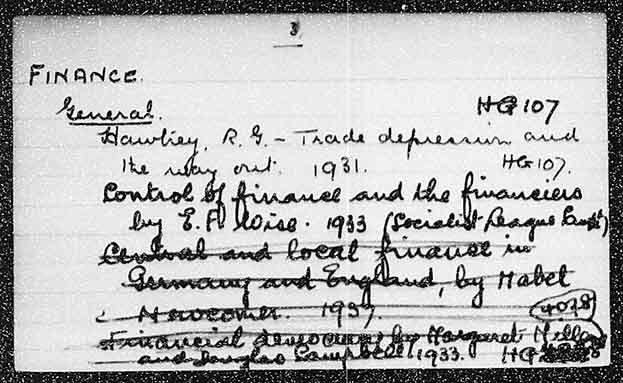 3
FINANCE.
General. HG 107
Hawtrey, R. G. - Trade depression and
the way out. 1931. HG 107.
Control of finance and the financiers
by E. F. Wise. 1933 (Socialist League
Central and local finance in
Germany and England, by Mabel
Newcomer. 1937. 4078
Financial democracy by Margaret Miller
and Douglas Campbell 1933. HG